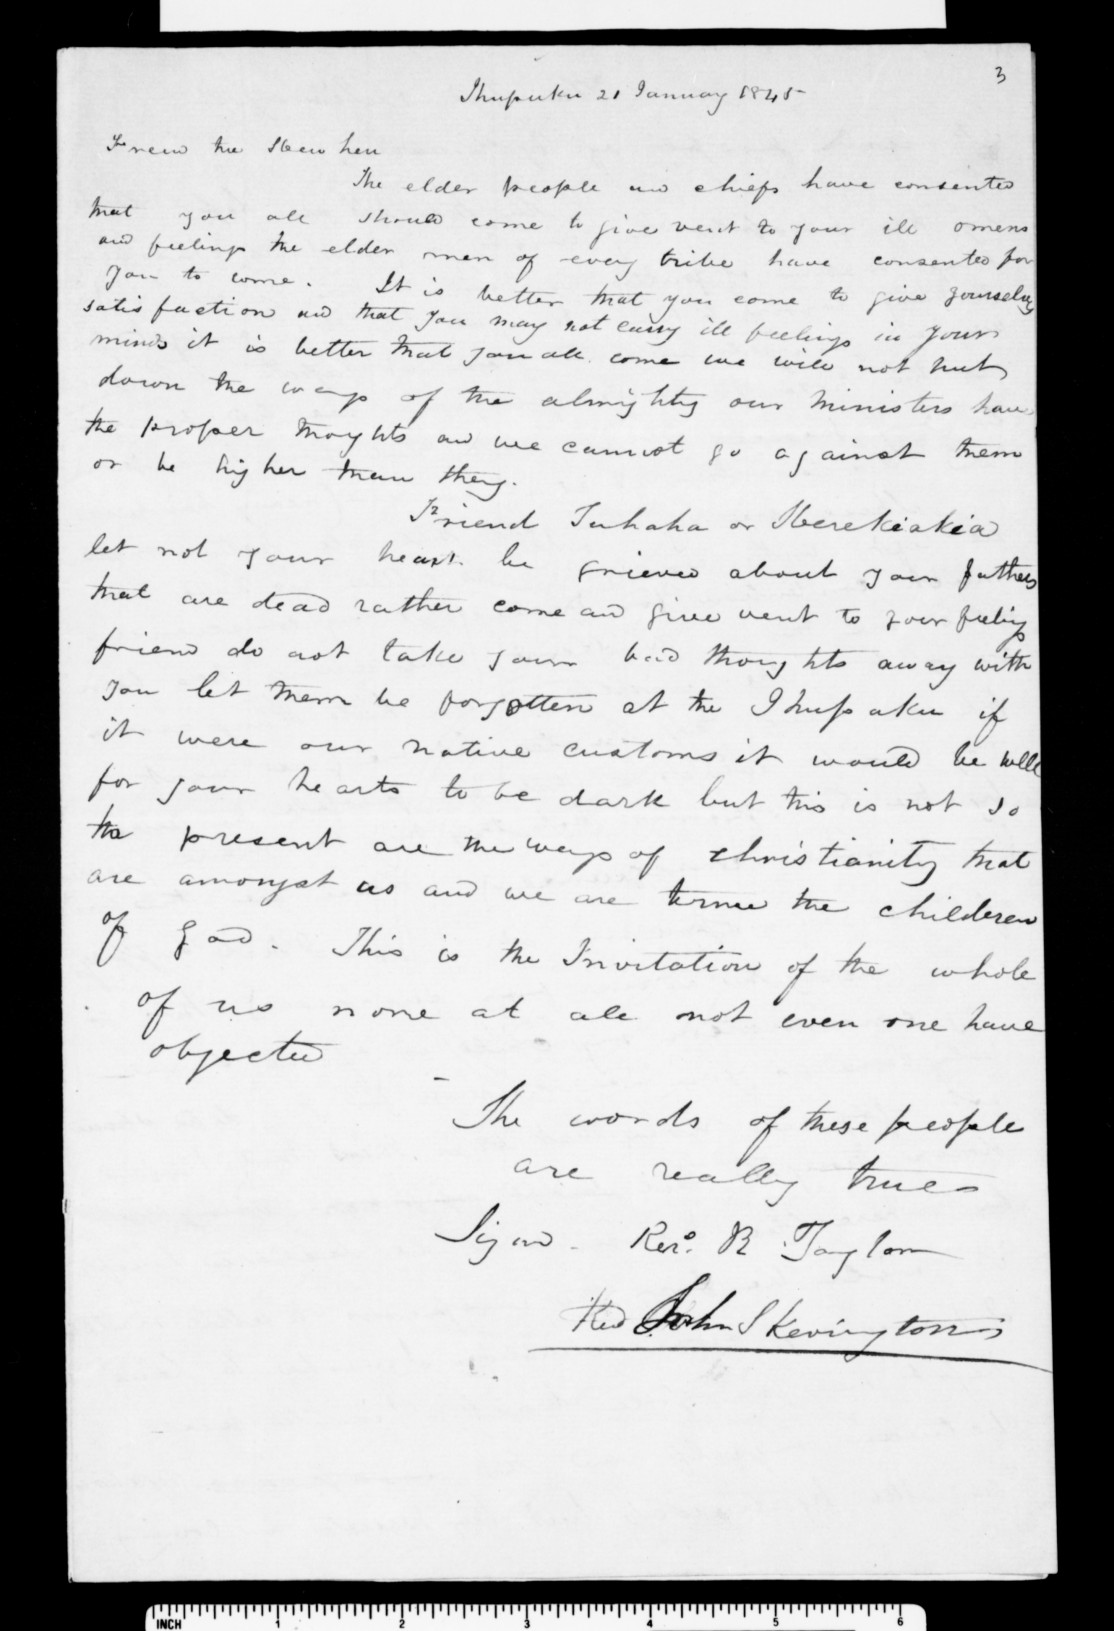 3
Ihupuku 21 January 1845
Friend the Heu heu
The elder people and chiefs have consented
that you all should come to give vent to your ill omens
and feelings the elder men of every tribe have consented for
you to come. It is better that you come to give yourselves
satisfaction and that you may not carry ill feelings in your
minds it is better that you all come we will not put
down the ways of the almighty our ministers have
the proper thoughts and we cannot go against them
or be higher than they.
Friend Tuhaha or Herekiekia
let not your heart be grieved about your fathers
that are dead rather come and give vent to your feelings
friend do not take your bad thoughts away with
you let them be forgotten at the Ihupuku if
it were our native customs it would be well
for your hearts to be dark but this is not so
the present are the ways of christianity that
are amongst us and we are termed the childeren
of God. This is the Invitation of the whole
of us none at all not even one have
objected
The words of these people
are really true
Signed - Revd. R Taylor
Revd John Skevington
INCH 1 2 3 4 5 6